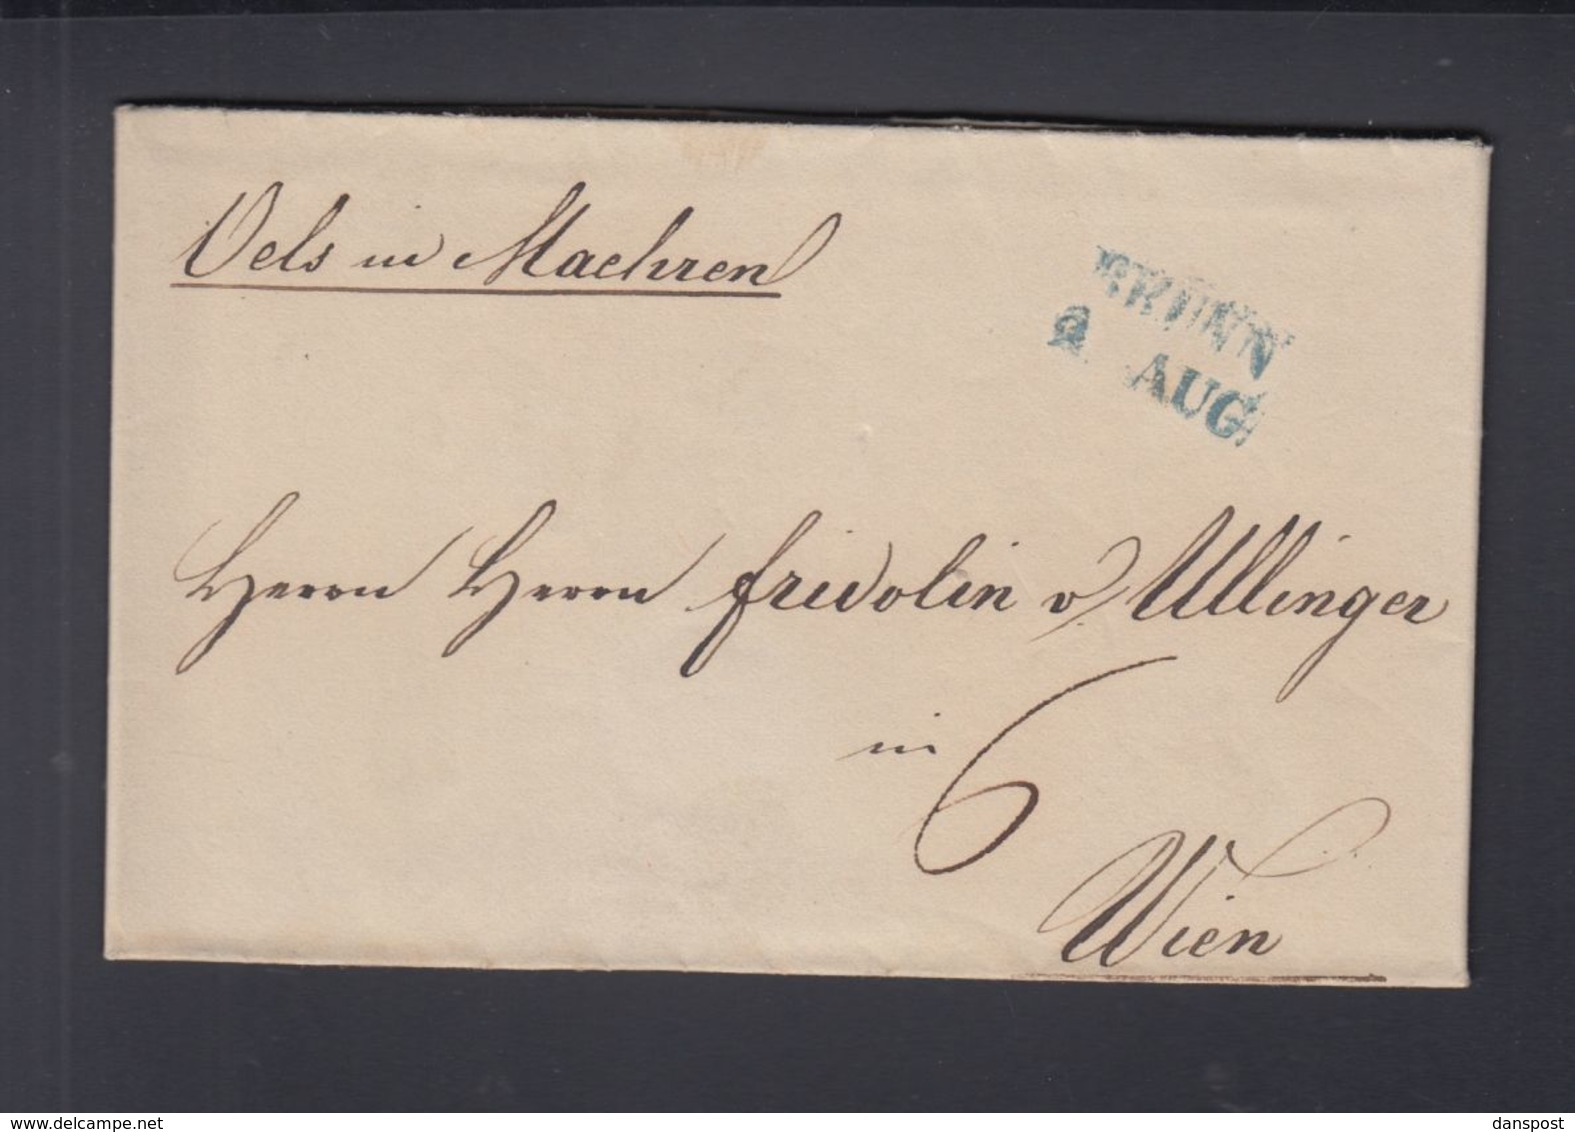 Oels in Maehren
BRÜNN
2. AUG.
Herrn Herrn Fridolin v. Ullinger
in
6
Wien
www.delcampe.net
danspost